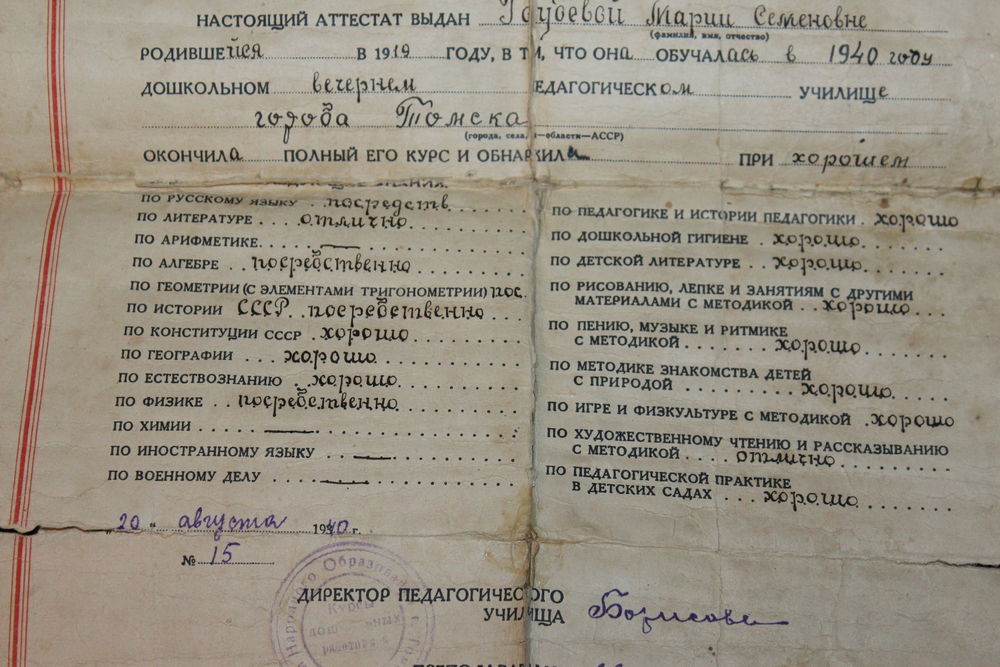 НАСТОЯЩИЙ АТТЕСТАТ ВЫДАН Марии Семеновне
(фамилия, имя, отчество)
РОДИВШЕЙСЯ В 1919 ГОДУ, В ТОМ, ЧТО ОНА ОБУЧАЛАСЬ в 1940 году
ДОШКОЛЬНОМ вечернем ПЕДАГОГИЧЕСКОМ УЧИЛИЩЕ
города Томска
(города, села, —области—АССР)
ОКОНЧИЛА ПОЛНЫЙ ЕГО КУРС И ОБНАРУЖИЛА ПРИ хорошем
ЗНАНИЯ:
ПО РУССКОМУ ЯЗЫКУ посредств
ПО ЛИТЕРАТУРЕ отлично
ПО АРИФМЕТИКЕ —
ПО АЛГЕБРЕ посредственно
ПО ГЕОМЕТРИИ (С ЭЛЕМЕНТАМИ ТРИГОНОМЕТРИИ) пос.
ПО ИСТОРИИ СССР посредственно
ПО КОНСТИТУЦИИ СССР хорошо
ПО ГЕОГРАФИИ хорошо
ПО ЕСТЕСТВОЗНАНИЮ хорошо
ПО ФИЗИКЕ посредственно
ПО ХИМИИ —
ПО ИНОСТРАННОМУ ЯЗЫКУ —
ПО ВОЕННОМУ ДЕЛУ —
ПО ПЕДАГОГИКЕ И ИСТОРИИ ПЕДАГОГИКИ хорошо
ПО ДОШКОЛЬНОЙ ГИГИЕНЕ хорошо
ПО ДЕТСКОЙ ЛИТЕРАТУРЕ хорошо
ПО РИСОВАНИЮ, ЛЕПКЕ И ЗАНЯТИЯМ С ДРУГИМИ
МАТЕРИАЛАМИ С МЕТОДИКОЙ хорошо
ПО ПЕНИЮ, МУЗЫКЕ И РИТМИКЕ
С МЕТОДИКОЙ хорошо
ПО МЕТОДИКЕ ЗНАКОМСТВА ДЕТЕЙ
С ПРИРОДОЙ хорошо
ПО ИГРЕ И ФИЗКУЛЬТУРЕ С МЕТОДИКОЙ хорошо
ПО ХУДОЖЕСТВЕННОМУ ЧТЕНИЮ И РАССКАЗЫВАНИЮ
С МЕТОДИКОЙ отлично
ПО ПЕДАГОГИЧЕСКОЙ ПРАКТИКЕ
В ДЕТСКИХ САДАХ хорошо
„20" августа 1940 г.
№ 15
Народного Образования
Курсы
ДИРЕКТОР ПЕДАГОГИЧЕСКОГО
УЧИЛИЩА